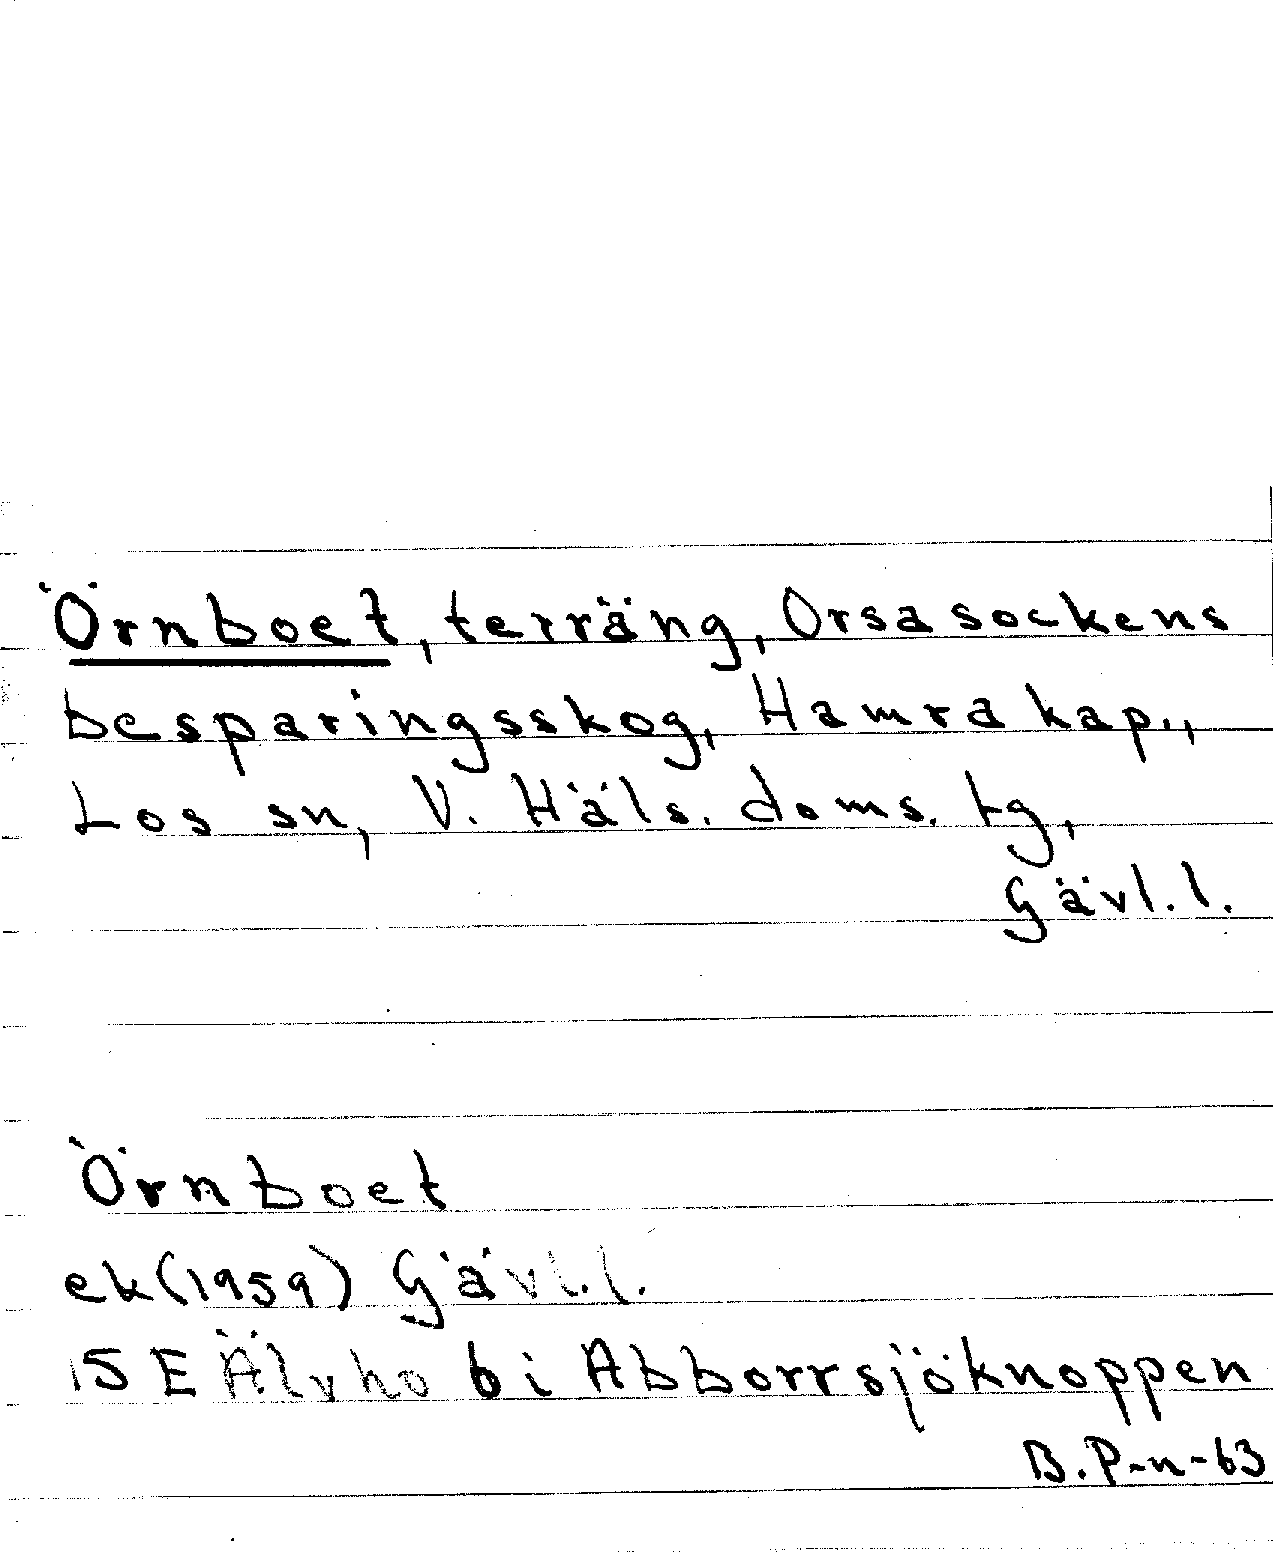 Örnboet, terräng, Orsa sockens
besparingsskog, Hamra kap.,
Los sn, V. Häls. doms. tg,
Gävl. l.
Örnboet
ek (1959) Gävl. l.
15 E Älvho 6 i Abborrsjöknoppen
B. P-n-63